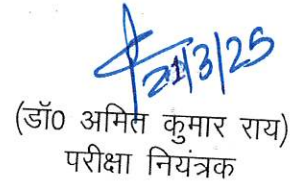 21/3/25
(डॉ0 अमित कुमार राय)
परीक्षा नियंत्रक